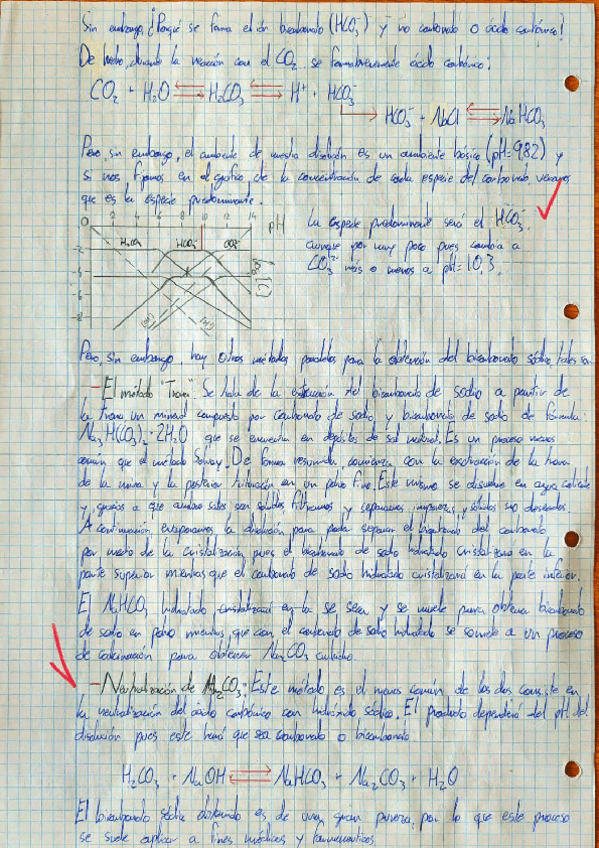 Sin embargo ¿Porqué se forma el ión bicarbonato (HCO₃⁻) y no carbonato o ácido carbónico?
De hecho, durante la reacción con el CO₂ se forma brevemente ácido carbónico:
CO₂ + H₂O ⇌ H₂CO₃ ⇌ H⁺ + HCO₃⁻
HCO₃⁻ + NaCl ⇌ NaHCO₃
Pero, sin embargo, el ambiente de nuestra disolución es un ambiente básico (pH=9,82) y
si nos fijamos en el gráfico de la concentración de cada especie del carbonato veremos
que es la especie predominante.
0 2 4 6 8 10 12 14 pH
H₂CO₃ HCO₃⁻ CO₃²⁻
-2
-4
-6
-8
log (C)
(H⁺) (OH⁻)
La especie predominante será el HCO₃⁻
aunque por muy poco pues cambia a
CO₃²⁻ más o menos a pH=10,3.
Pero, sin embargo, hay otros métodos para la obtención del bicarbonato sódico, tales son:
- El método "Trona" Se trata de la extracción del bicarbonato de sodio a partir de
la trona un mineral compuesto por carbonato de sodio y bicarbonato de sodio de fórmula:
Na₃H(CO₃)₂·2H₂O que se encuentra en depósitos de sal natural. Es un proceso menos
común que el método Solvay. De forma resumida, comienza con la extracción de la trona
de la mina y la posterior trituración en un polvo fino. Este mismo se disuelve en agua caliente
y, gracias a que ambas sales son solubles filtramos y separamos impurezas y sólidos no deseados.
A continuación evaporamos la disolución para poder separar el bicarbonato del carbonato
por medio de la cristalización, pues el bicarbonato de sodio hidratado cristalizará en la
parte superior mientras que el carbonato de sodio hidratado cristalizará en la parte inferior.
El NaHCO₃ hidratado cristalizado se seca y se muele para obtener bicarbonato
de sodio en polvo mientras que con el carbonato de sodio hidratado se somete a un proceso
de calcinación para obtener Na₂CO₃
- Neutralización de H₂CO₃: Este método es el menos común de los dos consiste en
la neutralización del ácido carbónico con hidróxido sódico. El producto dependerá del pH del
disolución pues este hará que sea carbonato o bicarbonato
H₂CO₃ + NaOH ⇌ NaHCO₃ + Na₂CO₃ + H₂O
El bicarbonato sódico obtenido es de una gran pureza, por lo que este proceso
se suele aplicar a fines médicos y farmacéuticos